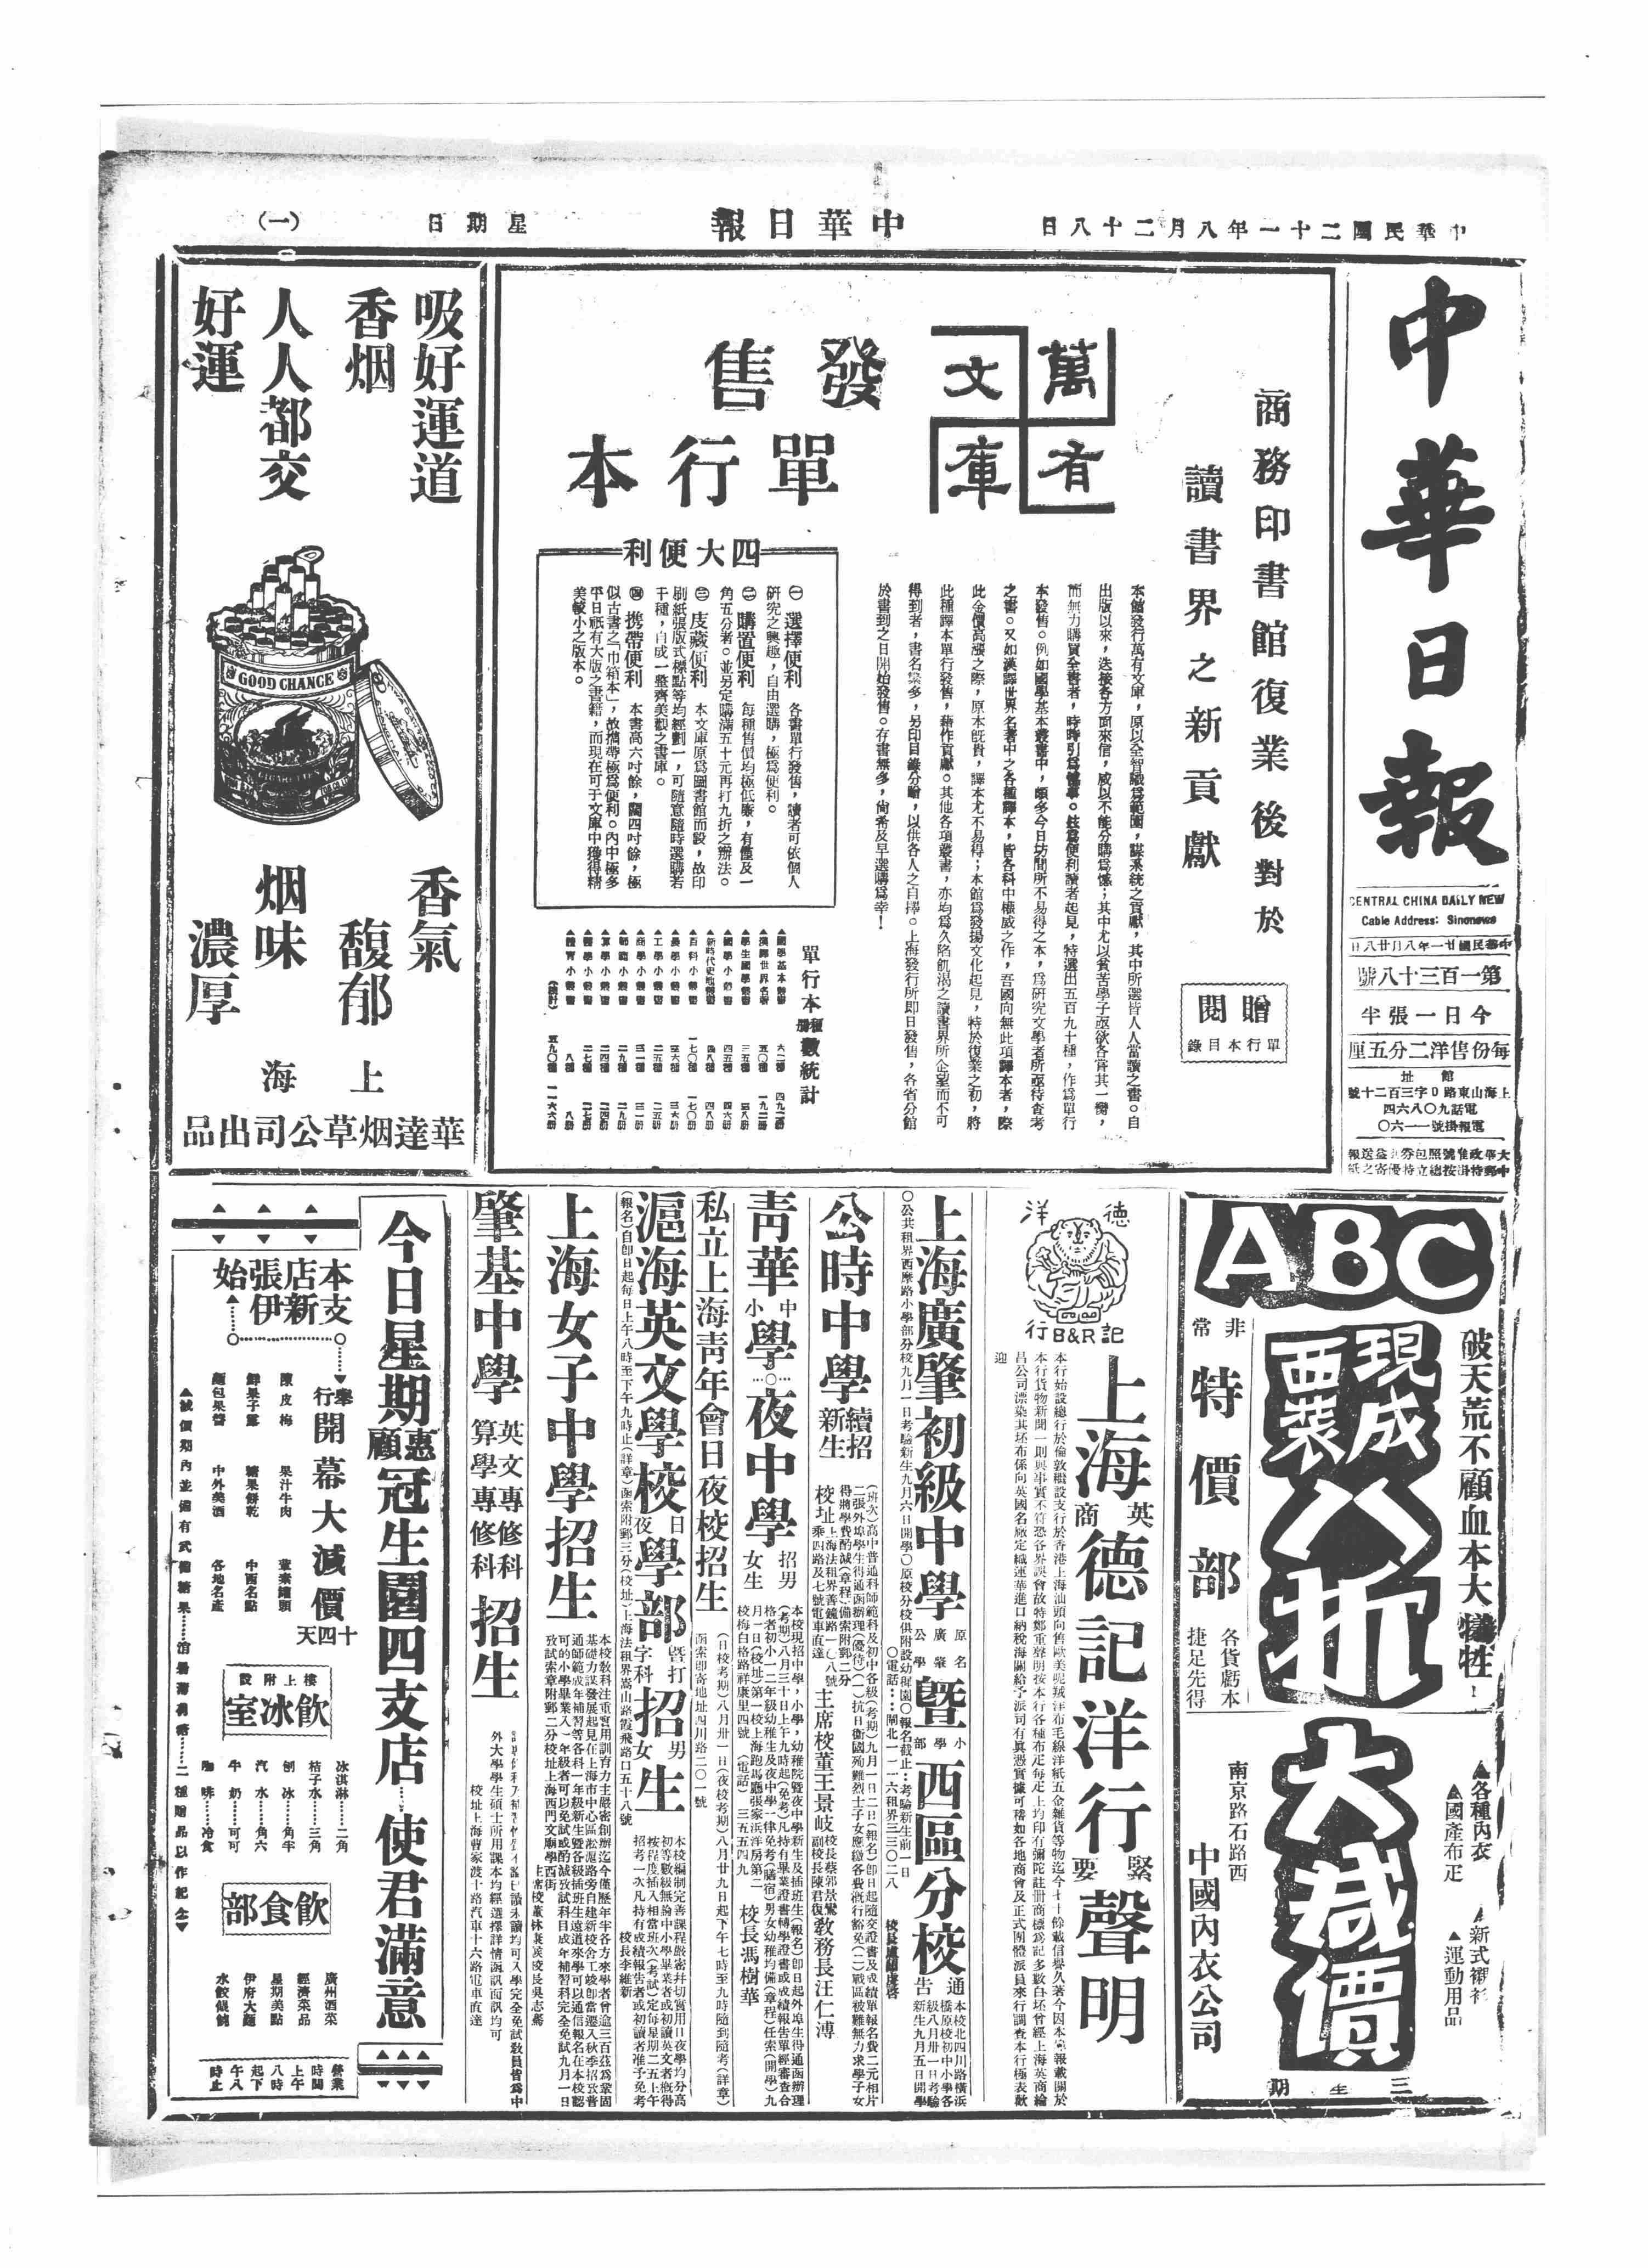 中華民國二十一年八月二十八日
中華日報
星期日
(一)
中華日報
CENTRAL CHINA DAILY NEW
Cable Address: Sinonews
中華民國廿一年八月廿八日
第一百三十八號
今日一張半
每份售洋二分五厘
館址
上海山東路D字三百二十號
電話九〇八六四
電報掛號一一六〇
商務印書館復業後對於
讀書界之新貢獻
贈閱
單行本目錄
萬有文庫
發售
單行本
本館發行萬有文庫,原以全智識為範圍,謀系統之貢獻,其中所選皆人人當讀之書。自
出版以來,迭接各方面來信,咸以不能分購為憾;其中尤以貧苦學子亟欲各嘗其一臠,
而無力購買全書者,時時引為憾事。茲為便利讀者起見,特選出五百九十種,作為單行
本發售。例如國學基本叢書中,頗多今日坊間所不易得之本,為研究文學者所亟待查考
之書。又如漢譯世界名著中之各種譯本,皆各科中權威之作,吾國向無此項譯本者,際
此金價高漲之際,原本既貴,譯本尤不易得;本館為發揚文化起見,特於復業之初,將
此種譯本單行發售,藉作貢獻。其他各項叢書,亦均為久陷飢渴之讀書界所企望而不可
得到者,書名繁多,另印目錄分贈,以供各人之自擇。上海發行所即日發售,各省分館
於書到之日開始發售。存書無多,尚希及早選購為幸!
四大便利
㊀選擇便利 各書單行發售,讀者可依個人
研究之興趣,自由選購,極為便利。
㊁購置便利 每種售價均極低廉,有僅及一
角五分者。並另定購滿五十元再打九折之辦法。
㊂庋藏便利 本文庫原為圖書館而設,故印
刷紙張版式標點等均經劃一,可隨意隨時選購若
干種,自成一整齊美觀之書庫。
㊃攜帶便利 本書高六吋餘,闊四吋餘,極
似古書之「巾箱本」,故攜帶極為便利。內中極多
平日祇有大版之書籍,而現在可于文庫中獲得精
美較小之版本。
單行本種冊數統計
▲國學基本叢書 六二種
▲漢譯世界名著 五〇種 一九二冊
▲學生國學叢書 三五種 三八冊
▲國學小叢書 四五種 四六冊
▲新時代史地叢書 四八種 四八冊
▲百科小叢書 一七〇種 一七〇冊
▲農學小叢書 三六種 三六冊
▲工學小叢書 二五種 二五冊
▲商學小叢書 三一種 三一冊
▲師範小叢書 二九種 二九冊
▲算學小叢書 二四種 二四冊
▲醫學小叢書 二七種 二七冊
▲體育小叢書 八種 八冊
(總計) 五九〇種 一一六六冊
吸好運道
香烟
人人都交
好運
GOOD CHANCE
香氣
馥郁
烟味
濃厚
上海
華達烟草公司出品
ABC
破天荒不顧血本大犧牲!
現成西裝八折
非常
特價部
各貨虧本
捷足先得
大減價
三星期
▲各種內衣
▲國產布疋
▲新式襯衫
▲運動用品
南京路石路西
中國內衣公司
德記洋行
B&R
上海英商德記洋行緊要聲明
本行始設總行於倫敦繼設支行於香港上海汕頭向售歐美呢羢洋布毛線洋紙五金雜貨等物迄今十十餘載信譽久著今因本埠報載關於
本行貨物新聞一則與事實不符恐各界誤會故特鄭重聲明按本行各種布疋每疋上均印有彌陀註冊商標為記多數白坯曾經上海英商綸
昌公司漂染其坯布係向英國名廠定織運華進口納稅海關給予派司有眞憑實據可稽如各地商會及正式團體派員來行調查本行極表歡
迎
上海廣肇初級中學原名廣肇公學暨小學部西區分校通告
本校北四川路橫浜
橋原校初中小學各
級八月卅一日考驗
新生九月五日開學
〇公共租界西摩路小學部分校九月一日考驗新生九月六日開學〇原校分校俱附設幼稚園〇報名截止:考驗新生前一日
〇電話:閘北一一六租界三三〇二八
公時中學續招新生
(班次)高中普通科師範科及初中各級(考期)九月一日二日(報名)即日起隨交證書及成績單報名費二元相片
二張外埠學生得通函辦理(優待)(一)抗日衞國殉難烈士子女應繳各費概行豁免(二)戰區被難無力求學子女
得將學費酌減(章程)備索附郵二分
校址上海法租界善鐘路一〇八號
乘四路及七號電車直達
主席校董王景岐
校長蔡郭景鸞
副校長陳君復
教務長汪仁溥
青華中小學…〇…夜中學招男女生
本校現招中學,小學,幼稚院暨夜中學新生及插班生(報名)即日起外埠生得通函辦理
(考期)八月三十日上午九時起(免考)凡持有畢業證書轉學證書或成績報告單經審查合
格者初小一二年級幼稚生及夜中學一律免考(膳宿)男女幼稚均備(章程)任索(開學)九
月一日(校址)第一校上海跑馬廳張家浜洋房第二
校梅白格路祥康里四號(電話)三五五四九
校長馮樹華
私立上海青年會日夜校招生
(日校考期)八月卅一日(夜校考期)八月廿九日起下午七時至九時隨到隨考(詳章)
函索即寄地址四川路二〇一號
滬海英文學校日夜學部暨打字科招男女生
本校編制完善課程嚴密幷切實用日夜學均分高
初等數級無論中小學畢業者或初讀英文者概得
按程度插入相當班次(考試)定每星期二五上午
招考一次凡持有成績報告者或初讀者准予免考
(報名)自即日起每日上午八時至下午九時止(詳章)函索附郵三分(校址)上海法租界嵩山路霞飛路口五十八號
校長李維新
上海女子中學招生
本校敎科注重實用訓育力主嚴密創辦迄今僅歷年半各方來學者曾逾三百茲為鞏固
基礎力謀發展起見在上海市中心區淞滬路旁自建新校舍工竣即當遷入秋季招致普
通師範成年補習等各科一年級新生暨各級插班生遠道來學可以通信報名在本校認
可的小學畢業入一年級者可以免試或酌減致試科目成年補習科完全免試九月一日
致試索章附郵二分校址上海西門文廟學西街
主席校董林康侯校長吳志騫
肇基中學英文專修科算學專修科招生
讀未讀均可入學完全免試敎員皆為中
外大學學生碩士所用課本均經選擇詳情函訊面訊均可
校址上海曹家渡十路汽車十六路電車直達
今日星期惠顧冠生園四支店…使君滿意
本支店新張伊始
舉行開幕大減價十四天
陳皮梅
鮮果子露
麵包果醬
果汁牛肉
糖果餅乾
中外美酒
葷素罐頭
中西名點
各地名產
樓上附設
飲冰室
冰淇淋…二角
桔子水…三角
刨冰…角半
汽水…角六
牛奶…可可
咖啡…冷食
飲食部
廣州酒菜
經濟菜品
星期美點
伊府大麵
水餃餛飩
營業時間上午八時起下午八時止